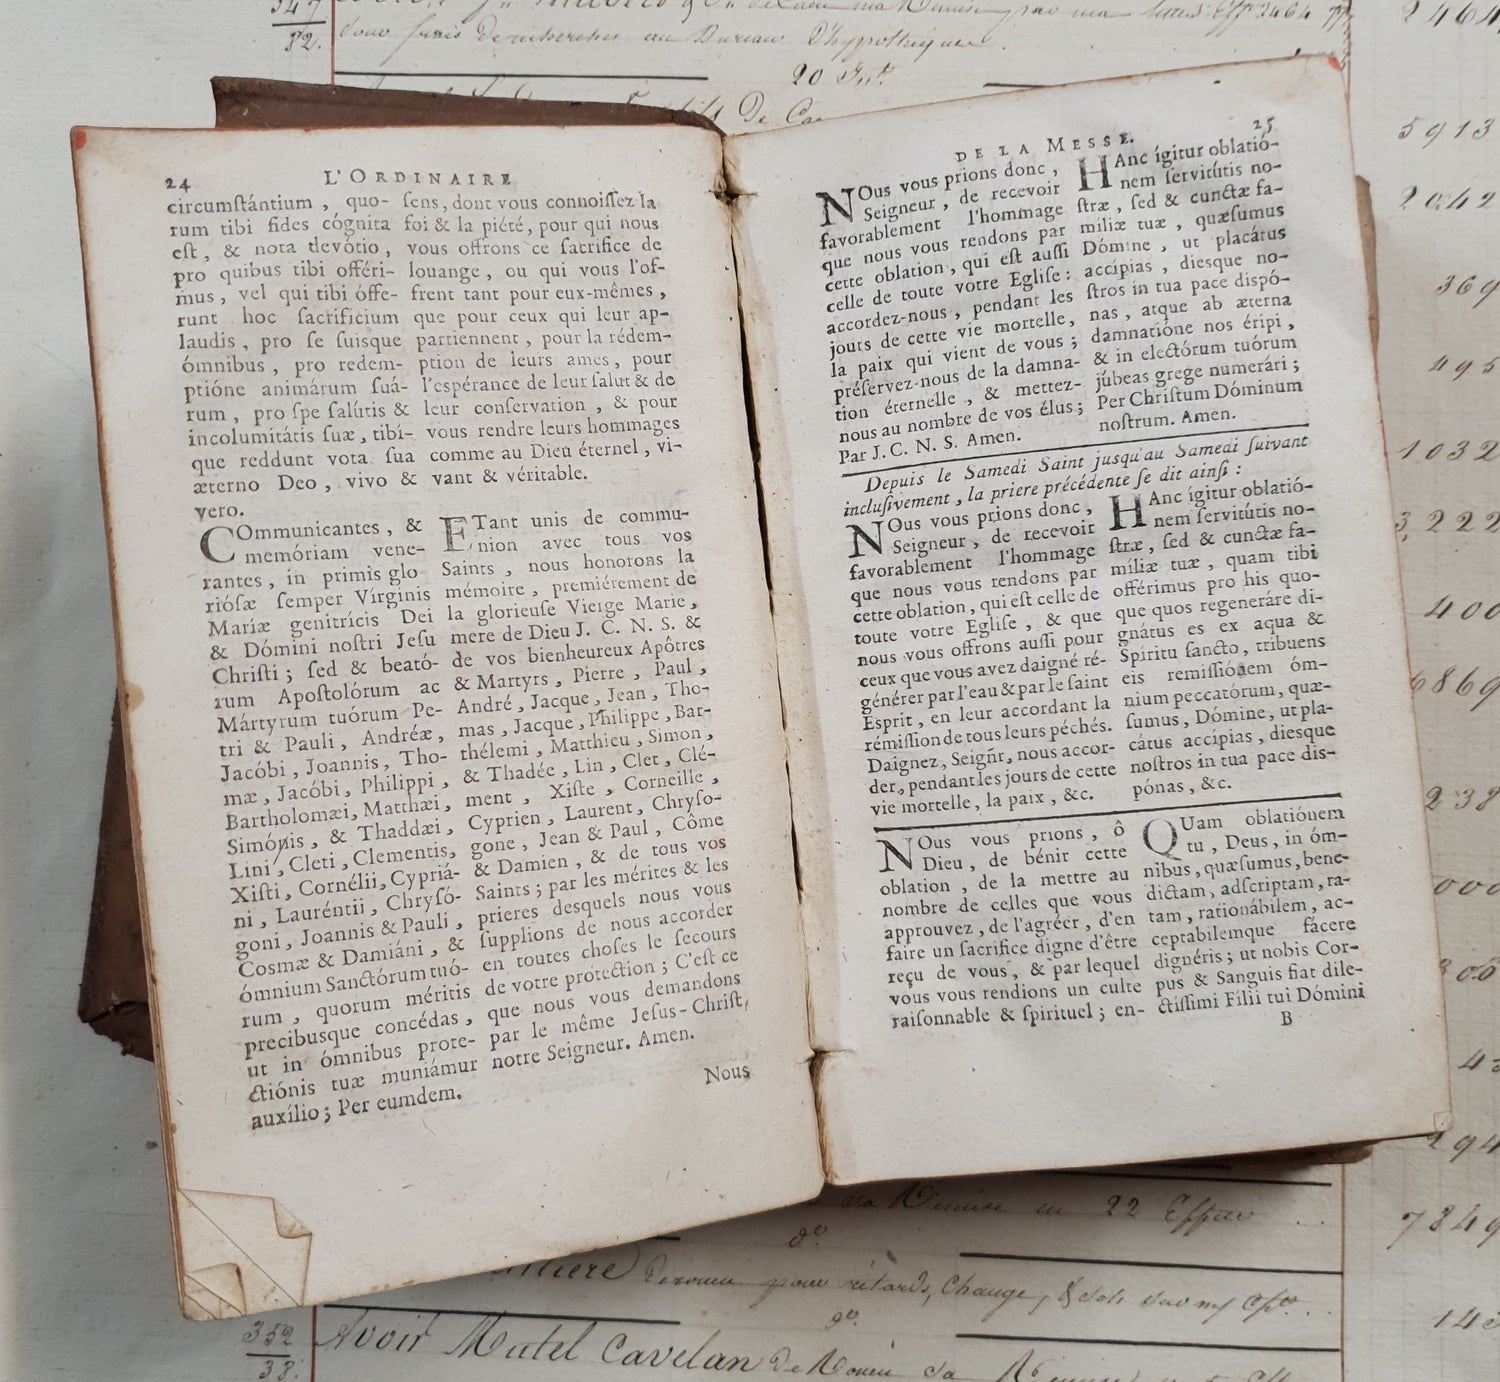 347
82.
20
2464
5913
2042
369
495
1032
3,222
400
6869
238
000
300
43
294
7849
143
24
L'ORDINAIRE
circumſtántium, quo-
rum tibi fides cógnita
eſt, & nota devótio,
pro quibus tibi offéri-
mus, vel qui tibi óffe-
runt hoc ſacrificium
laudis, pro ſe ſuisque
ómnibus, pro redem-
ptióne animárum ſuá-
rum, pro ſpe ſalútis &
incolumitátis ſuæ, tibí-
que reddunt vota ſua
æterno Deo, vivo &
vero.
COmmunicantes, &
memóriam vene-
rantes, in primis glo
riósæ ſemper Virginis
Maríæ genitricis Dei
& Dómini noſtri Jeſu
Chriſti; ſed & beató-
rum Apoſtolórum ac
Mártyrum tuórum Pe-
tri & Pauli, Andréæ,
Jacóbi, Joannis, Tho-
mæ, Jacóbi, Philippi,
Bartholomæi, Matthæi,
Simónis, & Thaddæi,
Lini, Cleti, Clementis,
Xiſti, Cornélii, Cypriá-
ni, Lauréntii, Chryſó-
goni, Joannis & Pauli,
Cosmæ & Damiáni, &
ómnium Sanctórum tuó-
rum, quorum méritis
precibusque concédas,
ut in ómnibus prote-
ctiónis tuæ muniámur
auxílio; Per eumdem.
ſens, dont vous connoiſſez la
foi & la piété, pour qui nous
vous offrons ce ſacrifice de
louange, ou qui vous l'of-
frent tant pour eux-mêmes,
que pour ceux qui leur ap-
partiennent, pour la rédem-
ption de leurs ames, pour
l'eſpérance de leur ſalut & de
leur conſervation, & pour
vous rendre leurs hommages
comme au Dieu éternel, vi-
vant & véritable.
ETant unis de commu-
nion avec tous vos
Saints, nous honorons la
mémoire, premiérement de
la glorieuſe Vierge Marie,
mere de Dieu J. C. N. S. &
de vos bienheureux Apôtres
& Martyrs, Pierre, Paul,
André, Jacque, Jean, Tho-
mas, Jacque, Philippe, Bar-
thélemi, Matthieu, Simon,
& Thadée, Lin, Clet, Clé-
ment, Xiſte, Corneille,
Cyprien, Laurent, Chryſo-
gone, Jean & Paul, Côme
& Damien, & de tous vos
Saints; par les mérites & les
prieres desquels nous vous
ſupplions de nous accorder
en toutes choſes le ſecours
de votre protection; C'eſt ce
que nous vous demandons
par le même Jeſus-Chriſt,
notre Seigneur. Amen.
Nous
DE LA MESSE.
25
NOus vous prions donc,
Seigneur, de recevoir
favorablement l'hommage
que nous vous rendons par
cette oblation, qui eſt auſſi
celle de toute votre Egliſe:
accordez-nous, pendant les
jours de cette vie mortelle,
la paix qui vient de vous;
préſervez-nous de la damna-
tion éternelle, & mettez-
nous au nombre de vos élus;
Par J. C. N. S. Amen.
HAnc ígitur oblatió-
nem ſervitútis no-
ſtræ, ſed & cunctæ fa-
miliæ tuæ, quæſumus
Dómine, ut placátus
accípias, diesque no-
ſtros in tua pace dispó-
nas, atque ab æterna
damnatióne nos éripi,
& in electórum tuórum
júbeas grege numerári;
Per Chriſtum Dóminum
noſtrum. Amen.
Depuis le Samedi Saint jusqu'au Samedi ſuivant
incluſivement, la priere précédente ſe dit ainſi:
NOus vous prions donc,
Seigneur, de recevoir
favorablement l'hommage
que nous vous rendons par
cette oblation, qui eſt celle de
toute votre Egliſe, & que
nous vous offrons auſſi pour
ceux que vous avez daigné ré-
générer par l'eau & par le ſaint
Esprit, en leur accordant la
rémiſſion de tous leurs péchés.
Daignez, Seigñr, nous accor-
der, pendant les jours de cette
vie mortelle, la paix, &c.
HAnc ígitur oblatió-
nem ſervitútis no-
ſtræ, ſed & cunctæ fa-
míliæ tuæ, quam tibi
offérimus pro his quo-
que quos regeneráre di-
gnátus es ex aqua &
Spíritu ſancto, tríbuens
eis remiſſiónem óm-
nium peccatórum, quæ-
ſumus, Dómine, ut pla-
cátus accípias, diesque
noſtros in tua pace dis-
pónas, &c.
NOus vous prions, ô
Dieu, de bénir cette
oblation, de la mettre au
nombre de celles que vous
approuvez, de l'agréer, d'en
faire un ſacrifice digne d'être
reçu de vous, & par lequel
vous vous rendions un culte
raiſonnable & ſpirituel; en-
QUam oblatiónem
tu, Deus, in óm-
nibus, quæſumus, bene-
dictam, adſcriptam, ra-
tam, rationábilem, ac-
ceptabilemque fácere
dignéris; ut nobis Cor-
pus & Sanguis fiat dile-
ctiſſimi Fílii tui Dómini
B
pour retards, Change,
352
38.
Avoir Mutel Cavelan de Rouen